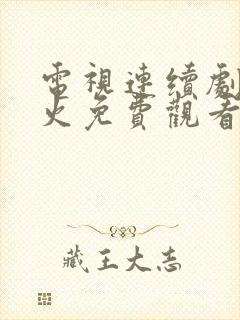 電視連續劇
火免費觀看
藏王大志